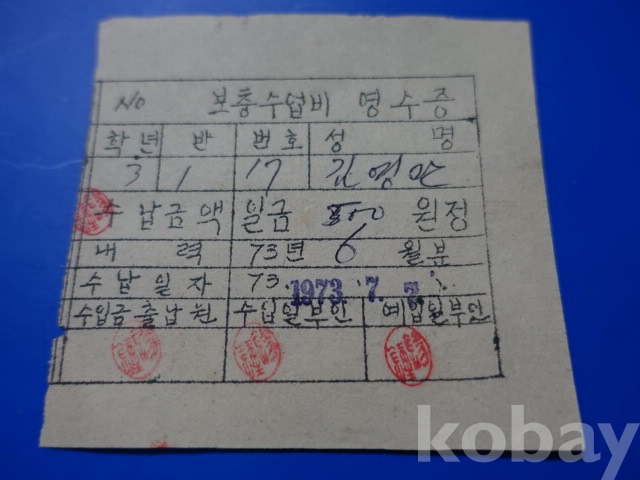 No 보충수업비 영수증
학년 반 번호 성 명
3 1 17 김영
수납금액 일금 원정
내 력 73년 6 월분
수납일자 73. 1973. 7. 7.
수입금출납원 수입일부인 예입일부인
kobay